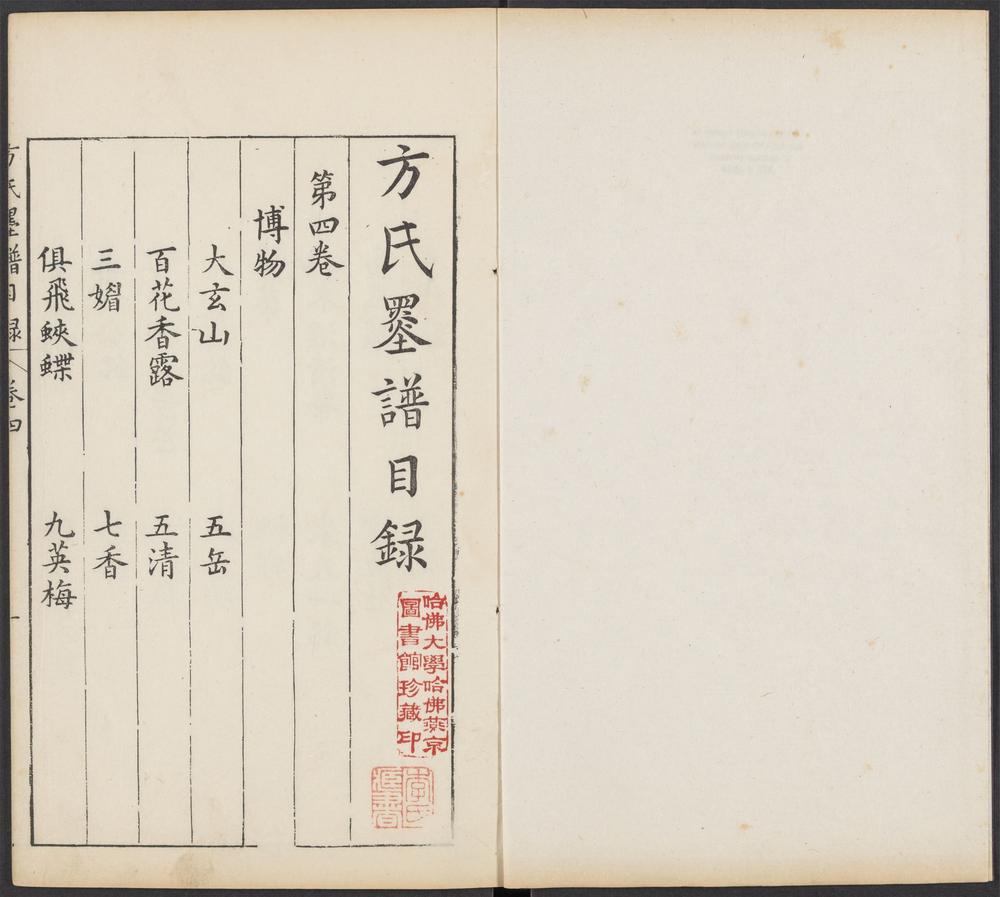 方氏墨譜目録
哈佛大學哈佛燕京
圖書館珍藏印
第四卷
博物
大玄山
五岳
百花香露
五清
三媚
七香
俱飛蛺蝶
九英梅
方氏墨譜目録
卷四
一